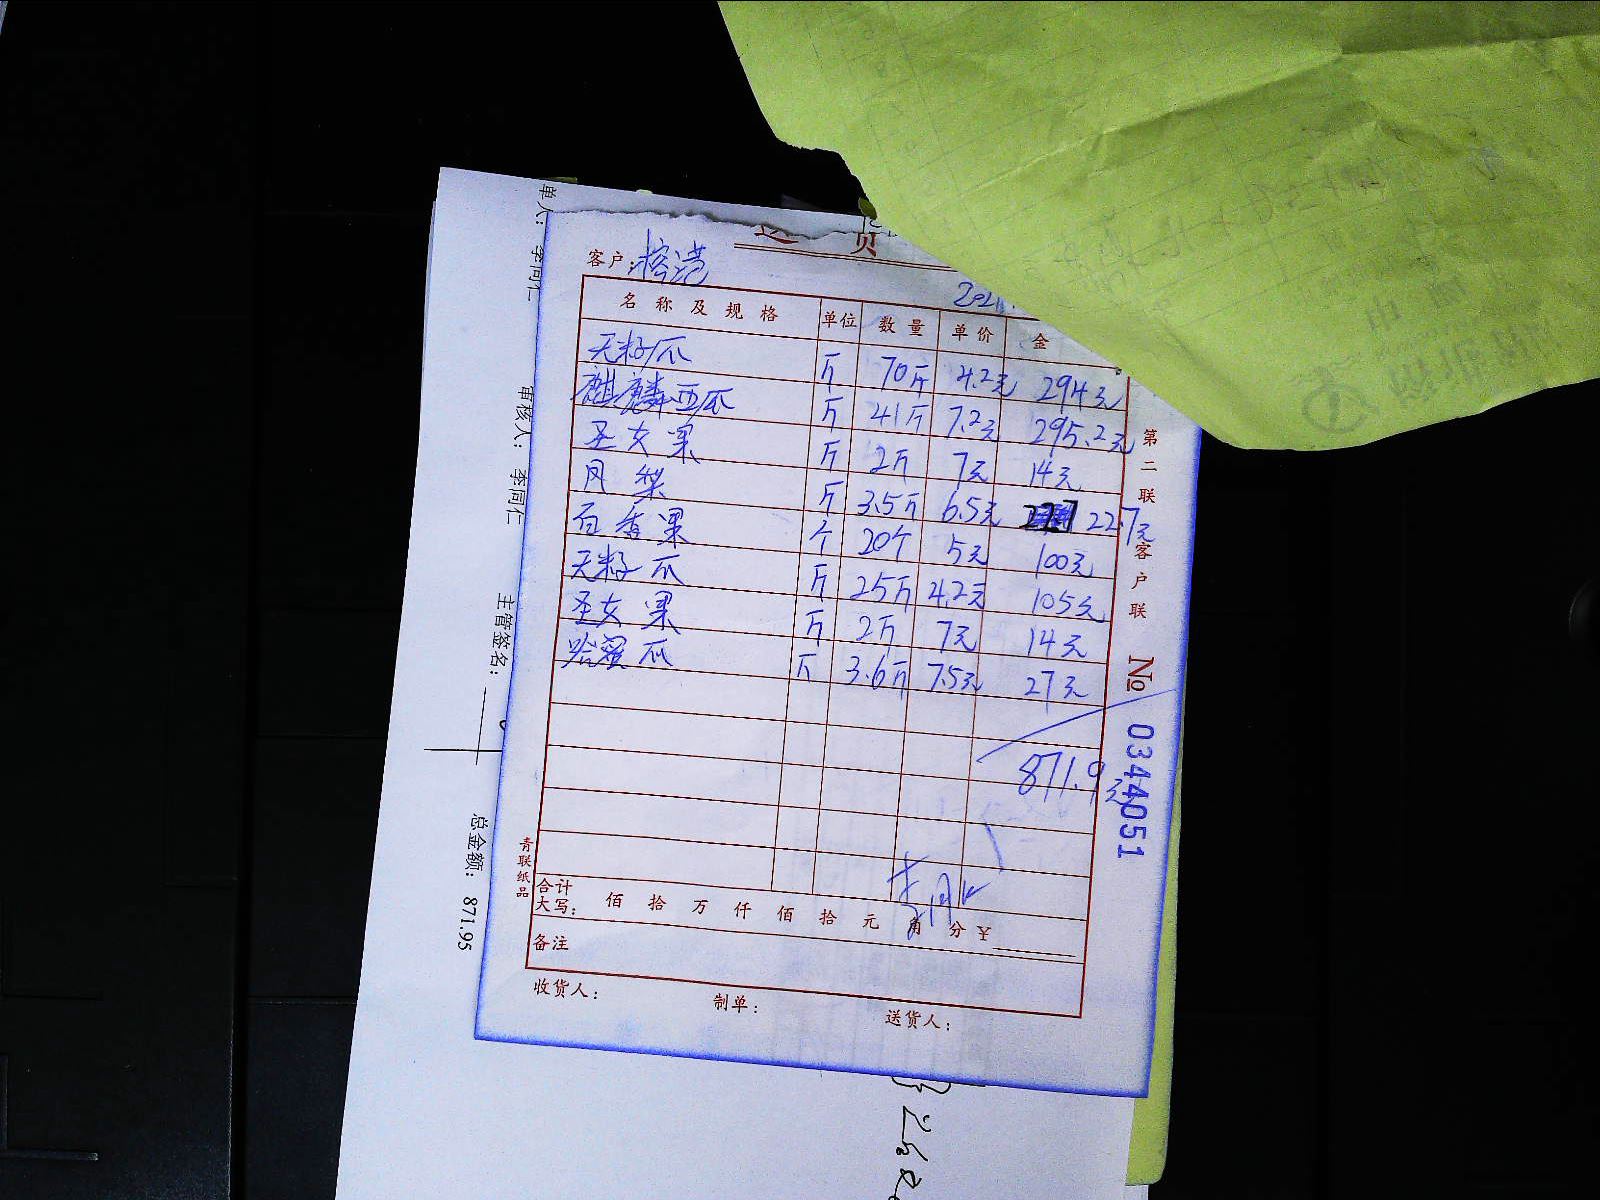 客户：榕港
2021
名称及规格 单位 数量 单价 金
无籽瓜 斤 70斤 4.2元 294元
麒麟西瓜 斤 41斤 7.2元 295.2元
圣女果 斤 2斤 7元 14元
凤梨 斤 3.5斤 6.5元 22.7元
百香果 个 20个 5元 100元
无籽瓜 斤 25斤 4.2元 105元
圣女果 斤 2斤 7元 14元
哈蜜瓜 斤 3.6斤 7.5元 27元
871.9元
合计
大写： 佰 拾 万 仟 佰 拾 元 角 分 ¥
李同仁
备注
收货人： 制单： 送货人：
第二联 客户联 No 0344051
青联纸品
单人： 李同仁
审核人： 李同仁
主管签名：
总金额： 871.95